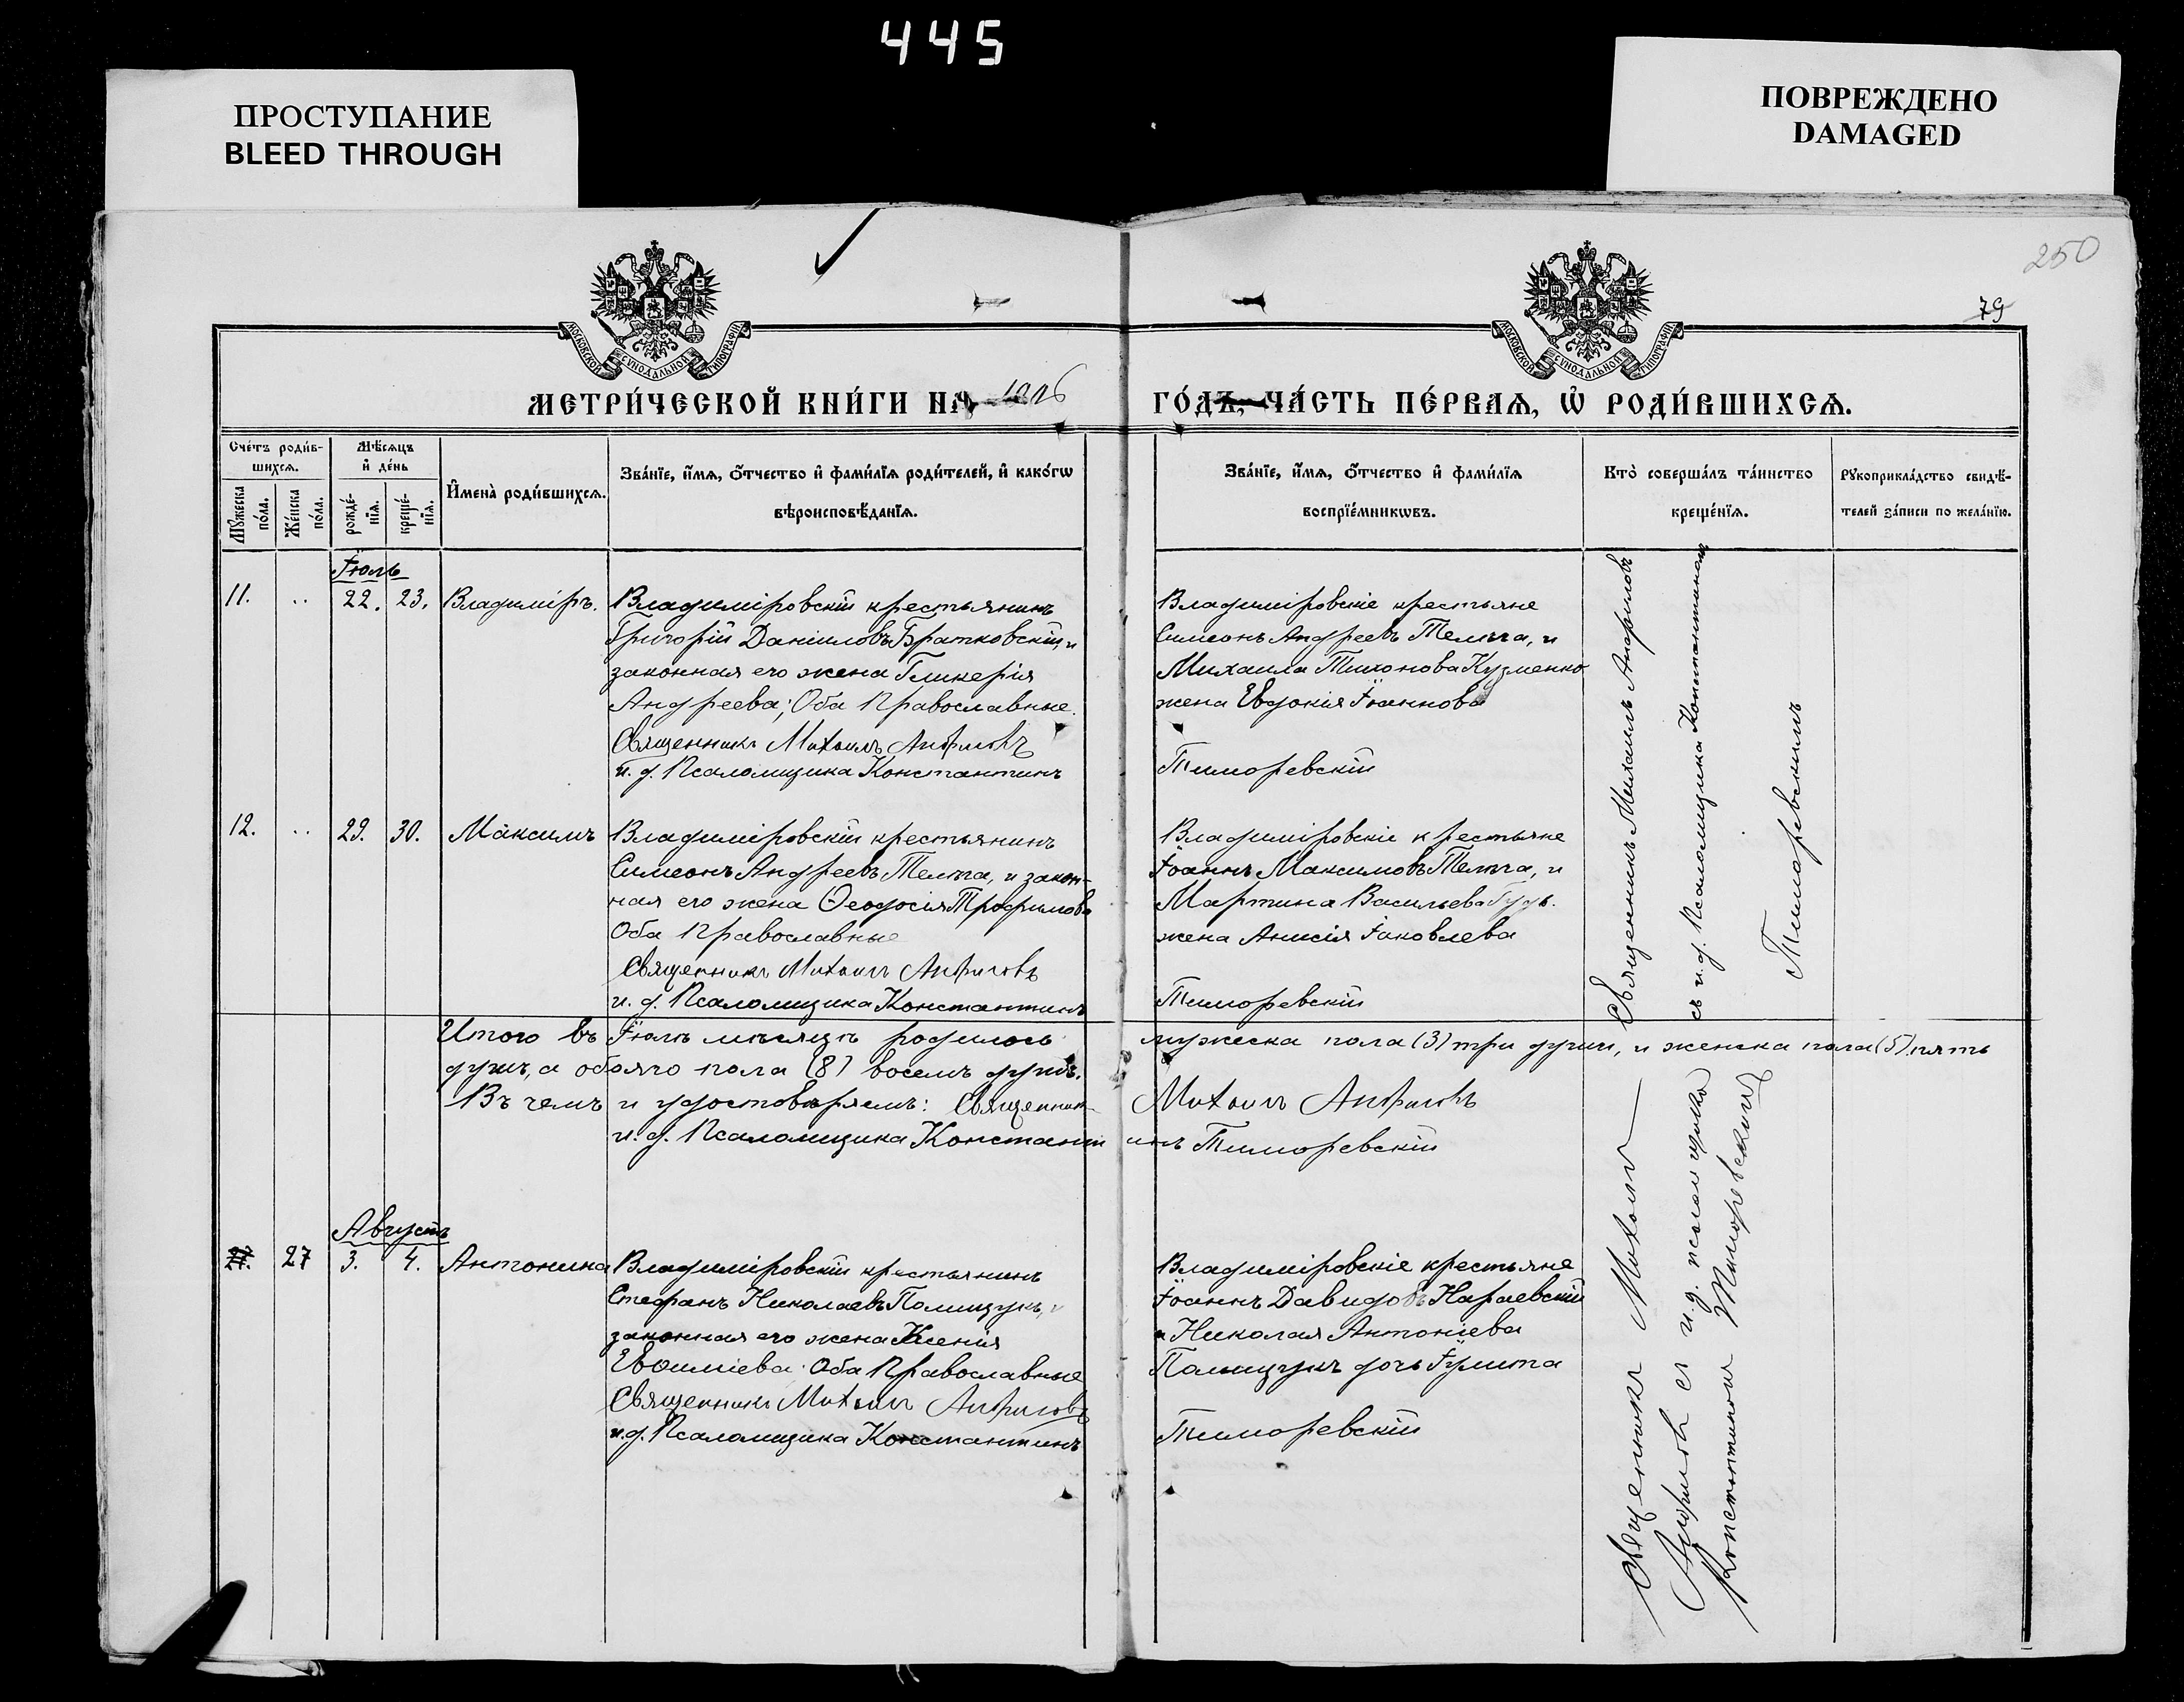 445
ПРОСТУПАНИЕ
BLEED THROUGH
ПОВРЕЖДЕНО
DAMAGED
250
79
МОСКОВСКОЙ СУНОДАЛЬНОЙ ТИПОГРАФІИ
МОСКОВСКОЙ СУНОДАЛЬНОЙ ТИПОГРАФІИ
МЕТРИ́ЧЕСКОЙ КНИ́ГИ НА
ГО́ДЪ, ЧА́СТЬ ПЕ́РВАѦ, Ѡ҆ РОДИ́ВШИХСѦ.
Сче́тъ роди́в-
шихсѧ.
Мѣ́сѧцъ
и҆ де́нь
Мꙋ́жеска
по́ла.
Же́нска
по́ла.
рожде́-
нїѧ.
креще́-
нїѧ.
И҆мена̀ роди́вшихсѧ.
Зва́нїе, и҆́мѧ, ѻ҆́тчество и҆ фами́лїѧ роди́телей, и҆ како́гѡ
вѣроисповѣ́данїѧ.
Зва́нїе, и҆́мѧ, ѻ҆́тчество и҆ фами́лїѧ
воспрїе́мникѡвъ.
Кто̀ соверша́лъ та́инство
креще́нїѧ.
Рꙋкоприкла́дство свидѣ́-
телей за́писи по жела́нїю.
Іюль
11. .. 22. 23. Владиміръ.
Владиміровскій крестьянинъ
Григорій Даніиловъ Братковскій, и
законная его жена Гликерія
Андреева; Оба Православные.
Священникъ Михаилъ Анфиловъ
и. д. Псаломщика Константинъ
Владиміровскіе крестьяне
Симеонъ Андреевъ и
Михаила Тихонова Кузменко
жена Евдокія Іоаннова
Тиморевскій
Священникъ Михаилъ Анфиловъ
съ и. д. Псаломщика Константиномъ
Тиморевскимъ
12. .. 29. 30. Максимъ
Владиміровскій крестьянинъ
Симеонъ Андреевъ и закон-
ная его жена Ѳеодосія Трофимова
Оба Православные
Священникъ Михаилъ Анфиловъ
и. д. Псаломщика Константинъ
Владиміровскіе крестьяне
Іоаннъ Максимовъ и
Мартина Васильева
жена Анисія Іаковлева
Тиморевскій
Итого въ Іюлѣ мѣсяцѣ родилось мужеска пола (3) три души, и женска пола (5) пять
душъ, а обоего пола (8) восемь душъ.
Въ чемъ и удостовѣряемъ: Священникъ Михаилъ Анфиловъ
и. д. Псаломщика Константинъ Тиморевскій
Августъ
27. 27 3. 4. Антонина
Владиміровскій крестьянинъ
Стефанъ Николаевъ Полищукъ, и
законная его жена Ксенія
Евѳиміева. Оба Православные
Священникъ Михаилъ Анфиловъ
и. д. Псаломщика Константинъ
Владиміровскіе крестьяне
Іоаннъ Давидовъ Караевскій
и Николая Антоніева
Полищукъ дочь Іулита
Тиморевскій
Священникъ Михаилъ
Анфиловъ съ и. д. псаломщика
Константиномъ Тиморевскимъ